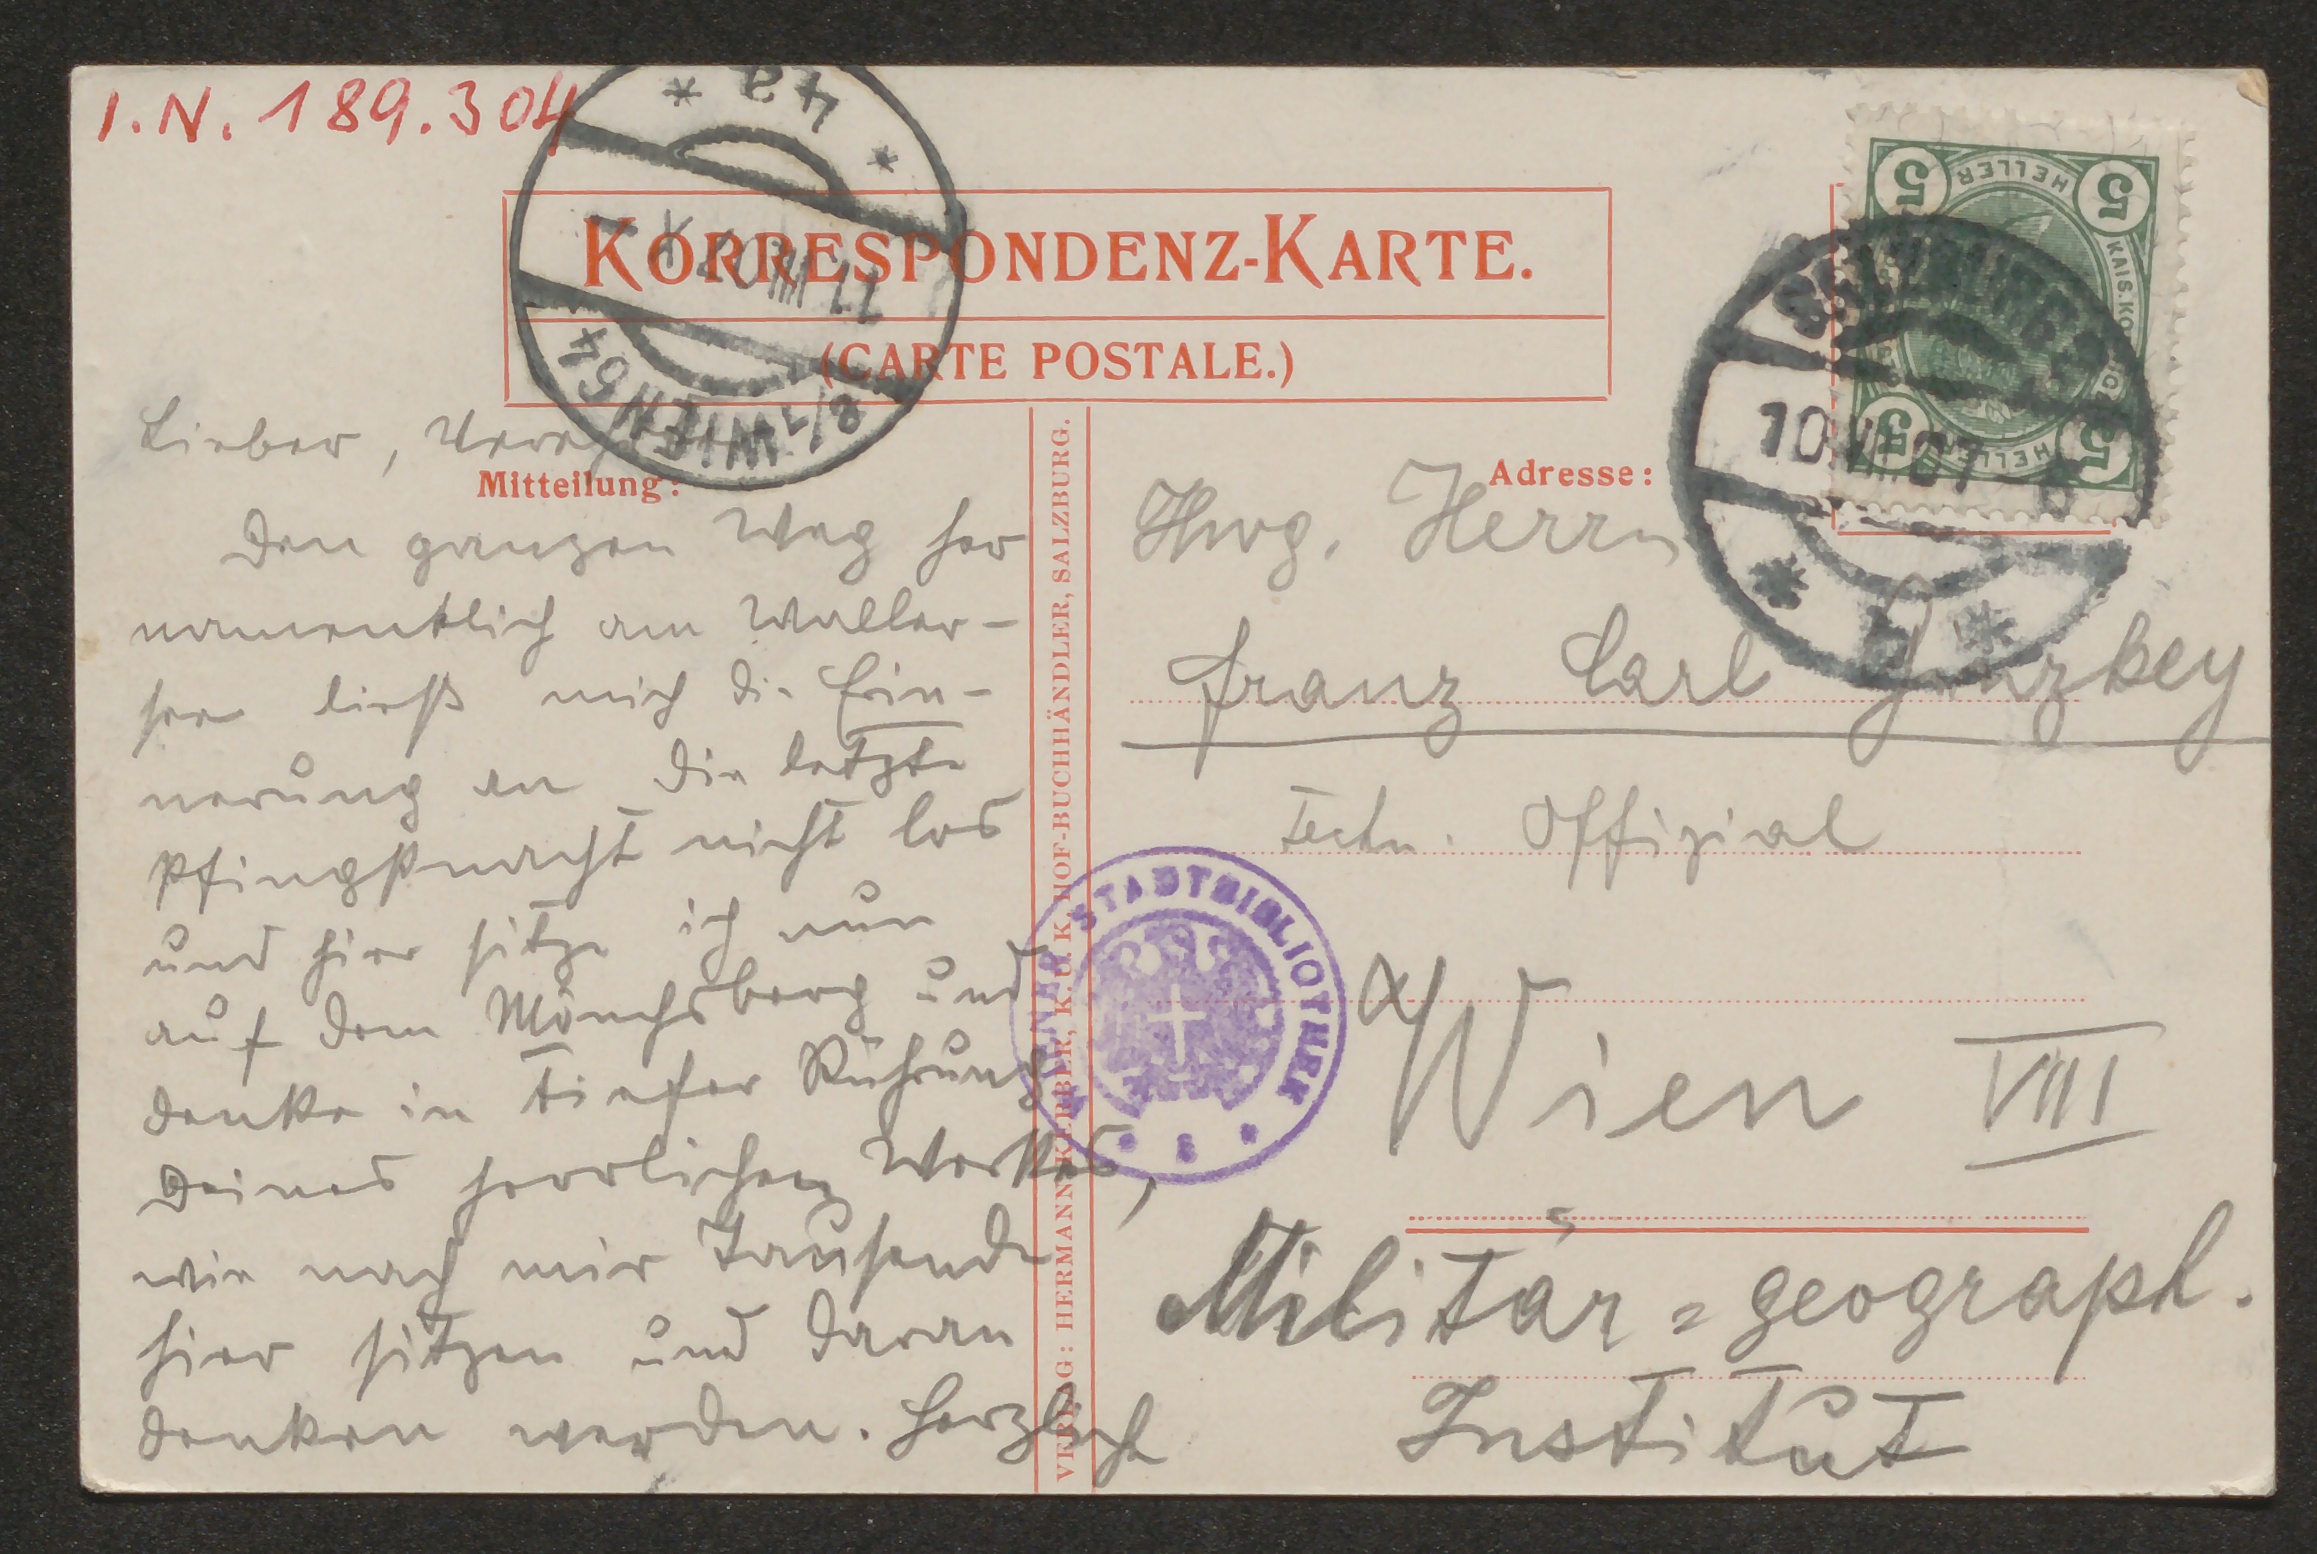 I.N. 189.304
KORRESPONDENZ-KARTE.
(CARTE POSTALE.)
Mitteilung:
Lieber, Verehrter
Den ganzen Weg her
namentlich am Waller-
see ließ mich die Erin-
nerung an die letzte
Pfingstnacht nicht los
und hier sitze ich nun
auf dem Mönchsberg und
denke in tiefer Rührung
Deines herrlichen Werkes,
wie nach mir Tausende
hier sitzen und daran
denken werden. Herzlichst
VERLAG: HERMANN KERBER, K. U. K. HOF-BUCHHÄNDLER, SALZBURG.
Adresse:
Hwg. Herrn
Franz Carl Ginzkey
Techn. Offizial
Wien VIII
Militär=geograph.
Institut
WIENER STADTBIBLIOTHEK
8/1 WIEN 64
4a
5 HELLER 5
5 HELLER 5
SALZBURG 2
10 VIII 07